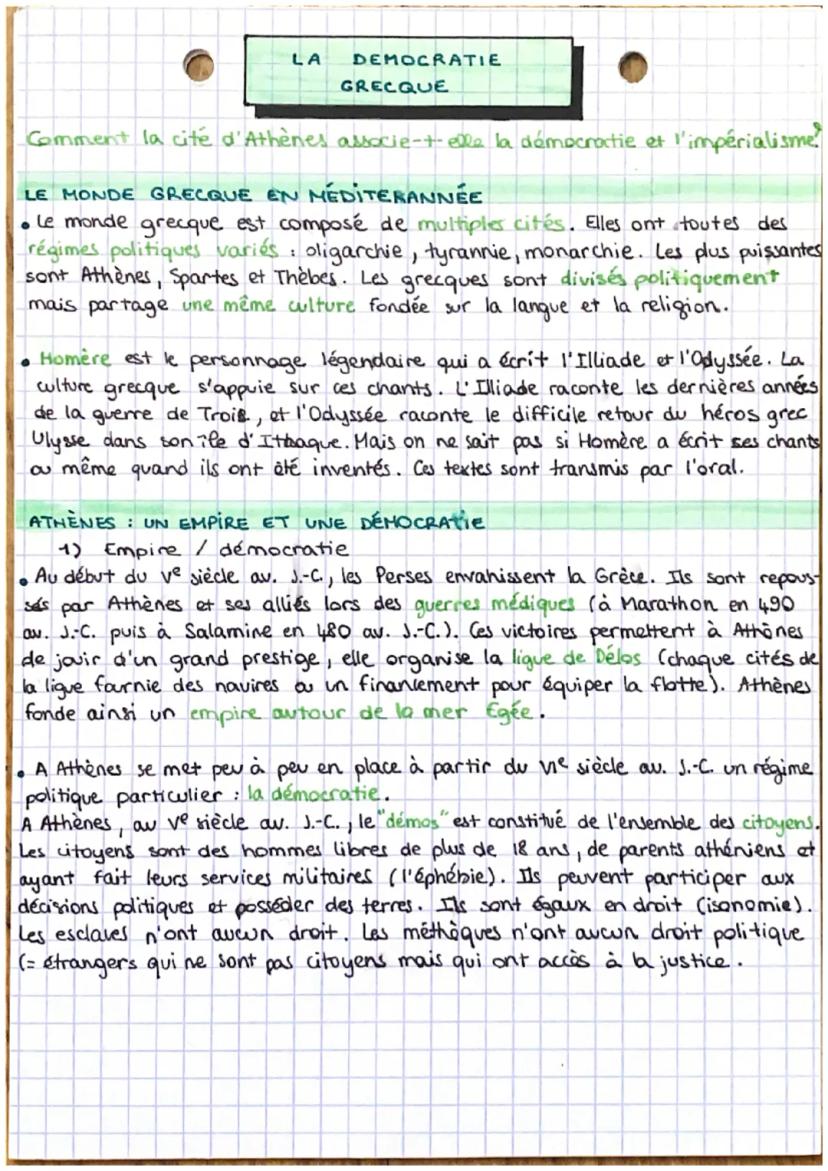 LA DEMOCRATIE
GRECQUE
Comment la cité d'Athènes associe-t-elle la démocratie et l'impérialisme?
LE MONDE GRECQUE EN MÉDITERANNÉE
• Le monde grecque est composé de multiples cités. Elles ont toutes des
régimes politiques variés : oligarchie, tyrannie, monarchie. Les plus puissantes
sont Athènes, Spartes et Thèbes. Les grecques sont divisés politiquement
mais partage une même culture fondée sur la langue et la religion.
• Homère est le personnage légendaire qui a écrit l'Illiade et l'Odyssée. La
culture grecque s'appuie sur ces chants. L'Illiade raconte les dernières années
de la guerre de Trois, et l'Odyssée raconte le difficile retour du héros grec
Ulysse dans son île d'Ithaque. Mais on ne sait pas si Homère a écrit ses chants
ou même quand ils ont été inventés. Ces textes sont transmis par l'oral.
ATHÈNES : UN EMPIRE ET UNE DÉMOCRATIE
1) Empire / démocratie
• Au début du Ve siècle av. J.-C., les Perses envahissent la Grèce. Ils sont repous-
sés par Athènes et ses alliés lors des guerres médiques (à Marathon en 490
av. J.-C. puis à Salamine en 480 av. J.-C.). Ces victoires permettent à Athènes
de jouir d'un grand prestige, elle organise la ligue de Délos (chaque cités de
la ligue fournie des navires ou un financement pour équiper la flotte). Athènes
fonde ainsi un empire autour de la mer Egée.
• A Athènes se met peu à peu en place à partir du VIe siècle av. J.-C. un régime
politique particulier : la démocratie.
A Athènes, au Ve siècle av. J.-C., le "démos" est constitué de l'ensemble des citoyens.
Les citoyens sont des hommes libres de plus de 18 ans, de parents athéniens et
ayant fait leurs services militaires (l'éphébie). Ils peuvent participer aux
décisions politiques et posséder des terres. Ils sont égaux en droit (isonomie).
Les esclaves n'ont aucun droit. Les méthèques n'ont aucun droit politique
(= étrangers qui ne sont pas citoyens mais qui ont accès à la justice.